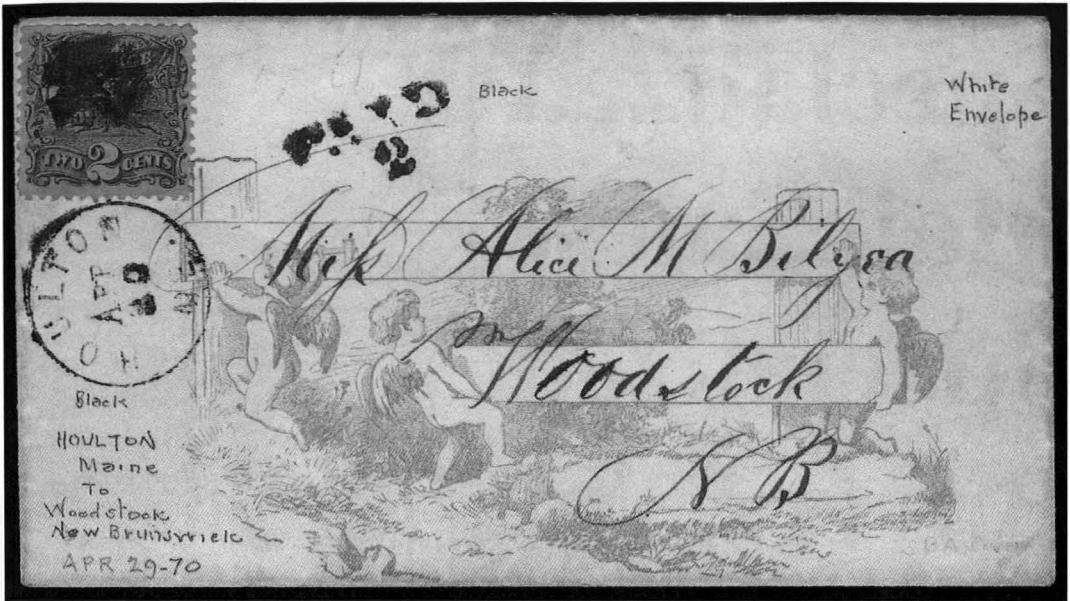 TWO 2 CENTS
PAID
2
Black
White
Envelope
HOULTON ME
APR
Miſs Alice M Bilyea
Woodstock
N B
Black
HOULTON
Maine
To
Woodstock
New Brunswick
APR 29-70